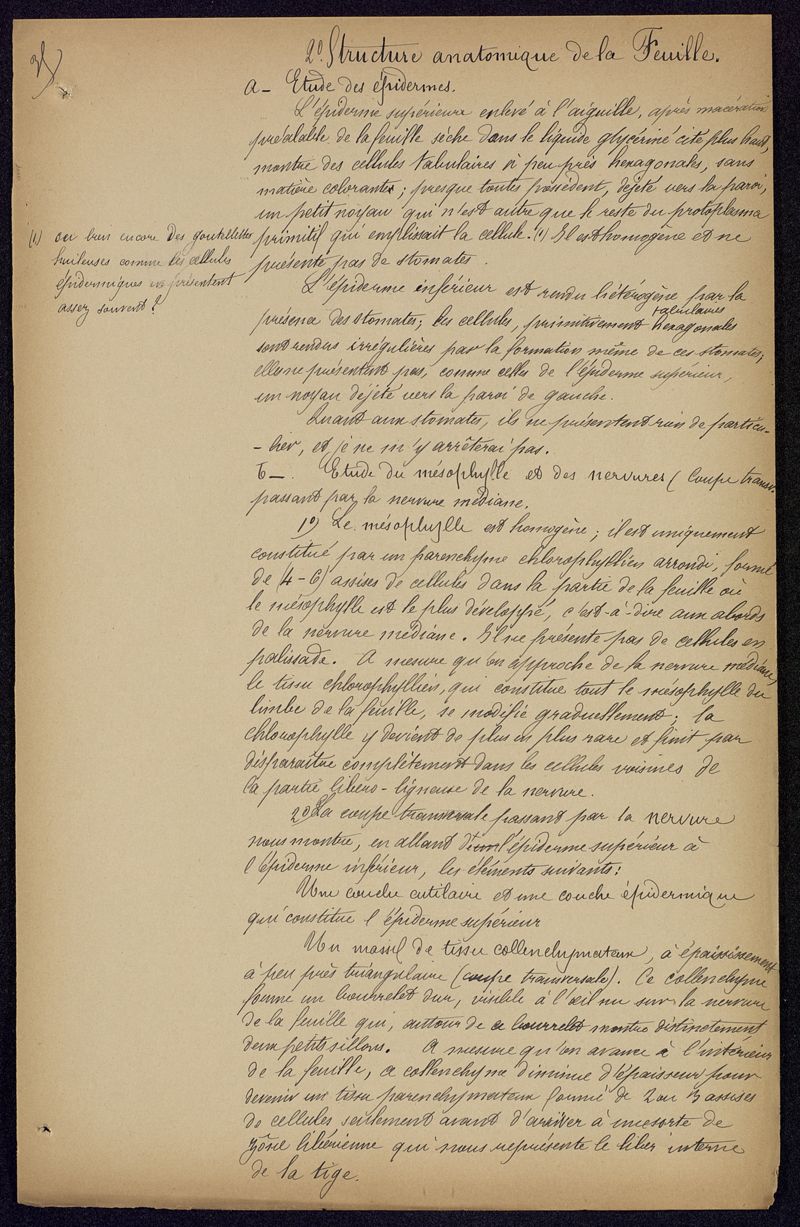 2º Structure anatomique de la Feuille.
a – Etude des épidermes.
L'épiderme supérieure enlevé à l'aiguille, après macération
préalable de la feuille sèche dans le liquide glycériné cité plus haut,
montre des cellules tabulaires à peu près hexagonales, sans
matière colorante ; presque toutes possèdent, déjeté vers la paroi,
un petit noyau qui n'est autre que le reste du protoplasma
primitif qui emplissait la cellule. (1) Il est homogène et ne
présente pas de stomates.
(1) ou bien encore des gouttelettes
huileuses comme les cellules
épidermiques en présentent
assez souvent !
L'épiderme inférieur est rendu hétérogène par la
présence des stomates ; les cellules, primitivement tabulaires hexagonales
sont rendus irrégulières par la formation même de ces stomates ;
elles ne présentent pas, comme celles de l'épiderme supérieur,
un noyau déjeté vers la paroi de gauche.
Quant aux stomates, ils ne présentent rien de particu-
-lier, et je ne m'y arrêterai pas.
b – . Etude du mésophylle et des nervures (Coupe transv.
passant par la nervure médiane.
1º) Le mésophylle est homogène ; il est uniquement
constitué par un parenchyme chlorophyllien arrondi, formé
de (4 – 6) assises de cellules dans la partie de la feuille où
le mésophylle est le plus développé, c'est-à-dire aux abords
de la nervure médiane. Il ne présente pas de cellules en
palissade. A mesure qu'on approche de la nervure médiane,
le tissu chlorophyllien, qui constitue tout le mésophylle du
limbe de la feuille, se modifie graduellement ; la
chlorophylle y devient de plus en plus rare et finit par
disparaître complètement dans les cellules voisines de
la partie libéro-ligneuse de la nervure.
2º) La coupe transversale passant par la nervure
nous montre, en allant de l'épiderme supérieur à
l'épiderme inférieur, les éléments suivants :
Une couche cutilaire et une couche épidermique
qui constitue l'épiderme supérieur
Un massif de tissu collenchymateux, à épaississement
à peu près triangulaire (coupe transversale). Ce collenchyme
forme un bourrelet dur, visible à l'œil nu sur la nervure
de la feuille qui, autour de ce bourrelet montre distinctement
deux petits sillons. A mesure qu'on avance à l'intérieur
de la feuille, ce collenchyme diminue d'épaisseur pour
devenir un tissu parenchymateux formé de 2 ou 3 assises
de cellules seulement avant d'arriver à une sorte de
zône libérienne qui nous représente le liber interne
de la tige.